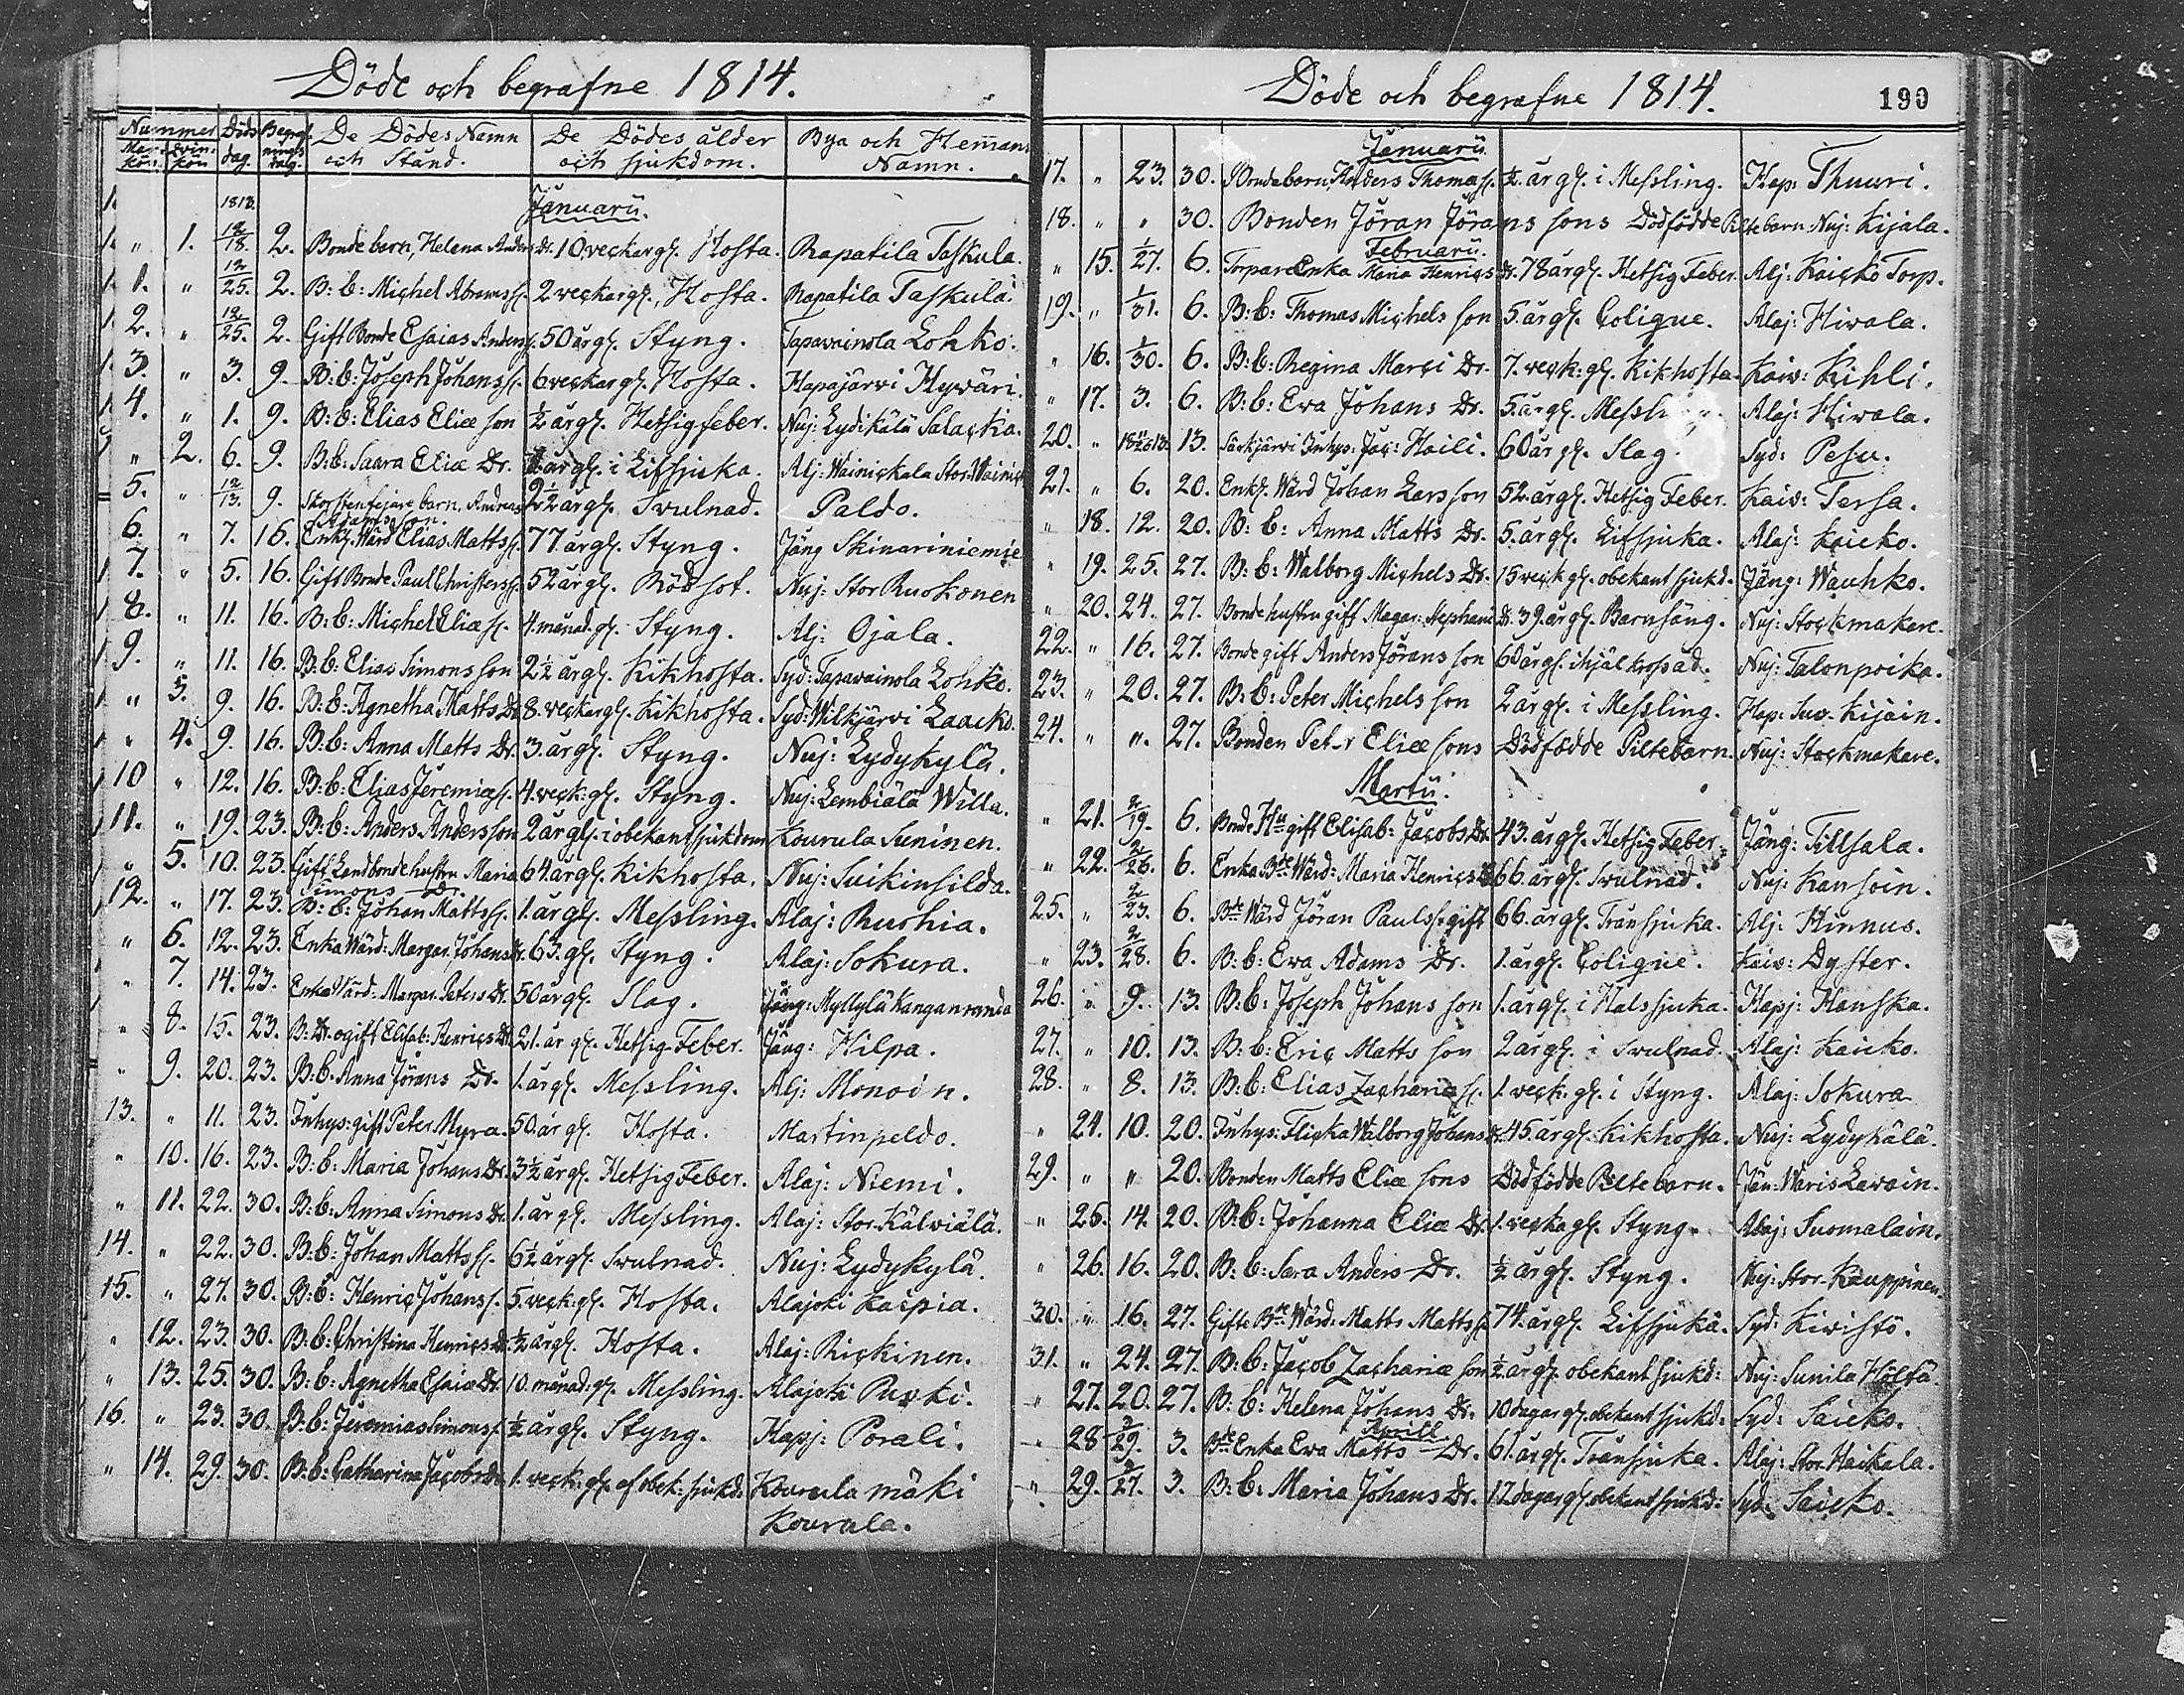 Döde och begrafne 1814.
Nummer Döds Begraf De Dödes Namn De Dödes ålder Bya och Hemans
Man qvin dag. nings och Stånd. och sjukdom. Namn.
kön. kön dag.
1813. Januarii.
" 1. 12/18. 2. Bonde barn, Helena Anders Dr. 10 veckar gl. Hosta. Rapatila Taskula.
1. " 12/25. 2. B: b: Michel Abramss. 2 veckar gl., Hosta. Rapatila Taskula.
2. " 12/25. 2. Gift Bonde Esaias Anderss. 50 år gl. Styng. Tapavainola Lohko.
3. " 3. 9. B: b: Joseph Johanss. 6 veckar gl. Hosta. Hapajärvi Hyväri.
4. " 1. 9. B: b: Elias Eliæ son ½ år gl. Hetsig feber. Nuj: Lydikälä Salacka.
" 2. 6. 9. B: b: Saara Eliæ Dr. år gl. i Lifsjuka. Alj: Wainickala Stor: Wainick
5. " 12/13. 9. Skorstenfejare barn, Andreas 2½ år gl. Svulnad. Paldo.
Adamsson.
6. " 7. 16. Enkl. Wärd Elias Mattss. 77 år gl. Styng. Jäng Skinnariniemie
7. " 5. 16. Gift Bonde Paul Christerss. 52 år gl. Rödsot. Nuj: Stor Ruokonen
8. " 11. 16. B: b: Michel Eliæ s. 4. månad. gl. Styng. Alj: Ojala.
9. " 11. 16. B. b. Elias Simons son 2½ år gl. Kikhosta. Syd: Tapavainola Lohko.
" 3. 9. 16. B: b: Agnetha Matts Dr 8. veckar gl. Kikhosta. Syd: Wilkjärvi Laacko.
" 4. 9. 16. B. b: Anna Matts Dr. 3. år gl. Styng. Nuj: Lydykylä.
10 " 12. 16. B: b: Elias Jeremiæ s. 4. veck: gl. Styng. Nuj: Lembiälä Willa.
11. " 19. 23. B: b: Anders Andersson 2 år gl. i obekant sjukdom Kourula Suninen.
" 5. 10. 23. Gift Landbonde hustru Maria 64. år gl. Kikhosta. Nuj: Suikinsilda.
Simons Dr.
12. " 17. 23. B: b: Johan Mattss. 1. år gl. Messling. Alaj: Ruohia.
" 6. 12. 23. Enka Wärd: Margar. Johans Dr. 63. gl. Styng. Alaj: Sokura.
" 7. 14. 23. Enka Wärd: Margar. Peters Dr. 50 år gl. Slag. Jäng: Myllylä Kanganranda
" 8. 15. 23. B: Dr. ogift Elisab: Henrics Dr. 21. år gl. Hetsig Feber. Jäng: Hilpa.
" 9. 20. 23. B. b. Anna Jörans Dr. 1. år gl. Messling. Alj: Monoin.
13. " 11. 23. Inhys: gift Peter Myra. 50. år gl. Hosta. Martinpeldo.
" 10. 16. 23. B: b: Maria Johans Dr. 3½ år gl. Hetsig Feber. Alaj: Niemi.
" 11. 22. 30. B: b: Anna Simons Dr. 1. år gl. Messling. Alaj: Stor. Kälviälä.
14. " 22. 30. B: b: Johan Mattss. 6½ år gl. Svulnad. Nuj: Lydykylä.
15. " 27. 30. B: b: Henric Johanss. 5. veck: gl. Hosta. Alajoki Kaipia.
" 12. 23. 30. B: b: Christina Henrics Dr. ½ år gl. Hosta. Alaj: Rickinen.
" 13. 25. 30. B: b: Agnetha Esaiæ Dr. 10. månad: gl. Messling. Alajoki Purki.
16. " 23. 30. B: b: Jeremias Simonss. ½ år gl. Styng. Hapj: Porali.
" 14. 29. 30. B: b: Catharina Jacobs Dr. 1. veck. gl. af obek: sjukd: Kourula mäki
Kourula.
Döde och begrafne 1814. 190
Januarii.
17. " 23. 30. Bondebarn Anders Thomæ s. ½. år gl. i Messling. Hap: Thuuri.
18. " " 30. Bonden Jöran Jörans sons Dödfödde Piltebarn. Nuj: Kijala.
Februarii.
" 15. 1/27. 6. Torpare Enka Maria Henrics Dr. 78 år gl. Hetsig Feber. Alj: Kaicko Torp.
19. " 1/31. 6. B: b: Thomas Michels son 5. år gl. Colique. Alaj: Hivala.
" 16. 1/30. 6. B: b: Regina Marci Dr. 7. veck: gl. Kikhosta. Kaiv: Kihli.
" 17. 3. 6. B: b: Eva Johans Dr. 5. år gl. Messling. Alaj: Hivala.
20. " 13. Särkjärvi Inhys: Jac: Haili. 60 år gl. Slag. Syd: Pesu.
21. " 6. 20. Enkl. Wärd Johan Larsson 52. år gl. Hetsig Feber. Kaiv: Tersa.
" 18. 12. 20. B: b: Anna Matts Dr. 5. år gl. Lifsjuka. Alaj: Kaicko.
" 19. 25. 27. B: b: Walborg Michels Dr. 15 veck gl. obekant sjukd. Jäng: Wauhko.
" 20. 24. 27. Bonde hustru gift Magar: Stephani Dr. 39. år gl. Barnsäng. Nuj: Stockmakare.
22. " 16. 27. Bonde gift Anders Jörans son 60 år gl. ihjäl krossad. Nuj: Talonpoika.
23. " 20. 27. B: b: Peter Michels son 2 år gl. i Messling. Hap: Suv. Kijain.
24. " ". 27. Bonden Peter Eliæ sons Dödfödde Piltebarn. Nuj: Stockmakare.
Martii.
" 21. 2/19. 6. Bonde Hu gift Elisab: Jacobs Dr. 43. år gl. Hetsig Feber. Jäng: Tillsala.
" 22. 2/26. 6. Enka Bde Wärd: Maria Henrics Dr. 66. år gl. Svulnad. Nuj: Kansoin.
25. " 2/23. 6. Bde Wärd Jöran Pauls s. gift 66. år gl. Tränsjuka. Alj: Hinnus.
" 23. 2/28. 6. B: b: Eva Adams Dr. 1. år gl. Colique. Kaiv: Dyster.
26. " 9. 13. B. b: Joseph Johans son 1. år gl. i Halssjuka. Hapj: Hanska.
27. " 10. 13. B: b: Eric Matts son 2 år gl. i Svulnad. Alaj: Kaicko.
28. " 8. 13. B: b: Elias Zachariæ s. 1. veck. gl. i Styng. Alaj: Sokura
" 24. 10. 20. Inhys: Flicka Walborg Johans Dr. 45. år gl. Kikhosta. Nuj: Lydykälä.
29. " " 20. Bonden Matts Eliæ sons Dödfödde Piltebarn. Jän: Waris Lavain.
" 25. 14. 20. B: b: Johanna Eliæ Dr. 1. vecka gl. Styng. Alaj: Suomalain.
" 26. 16. 20. B: b: Sara Anders Dr. ½ år gl. Styng. Nuj: Stor. Kauppinen.
30. " 16. 27. Gifte Bde Wärd: Matts Mattss. 74. år gl. Lifsjuka. Syd: Kivistö.
31. " 24. 27. B: b: Jacob Zachariæ son ½ år gl. obekant sjukd: Nuj: Sunila Höltä.
" 27. 20. 27. B: b: Helena Johans Dr. 10 dagar gl. obekant sjukd: Syd: Saicko.
Aprill.
" 28 3/29. 3. Bde Enka Eva Matts Dr. 61. år gl. Tränsjuka. Alaj: Stor Haikala.
" 29. 3/27. 3. B: b: Maria Johans Dr. 12 dagar gl. obekant sjukd: Syd. Saicko.